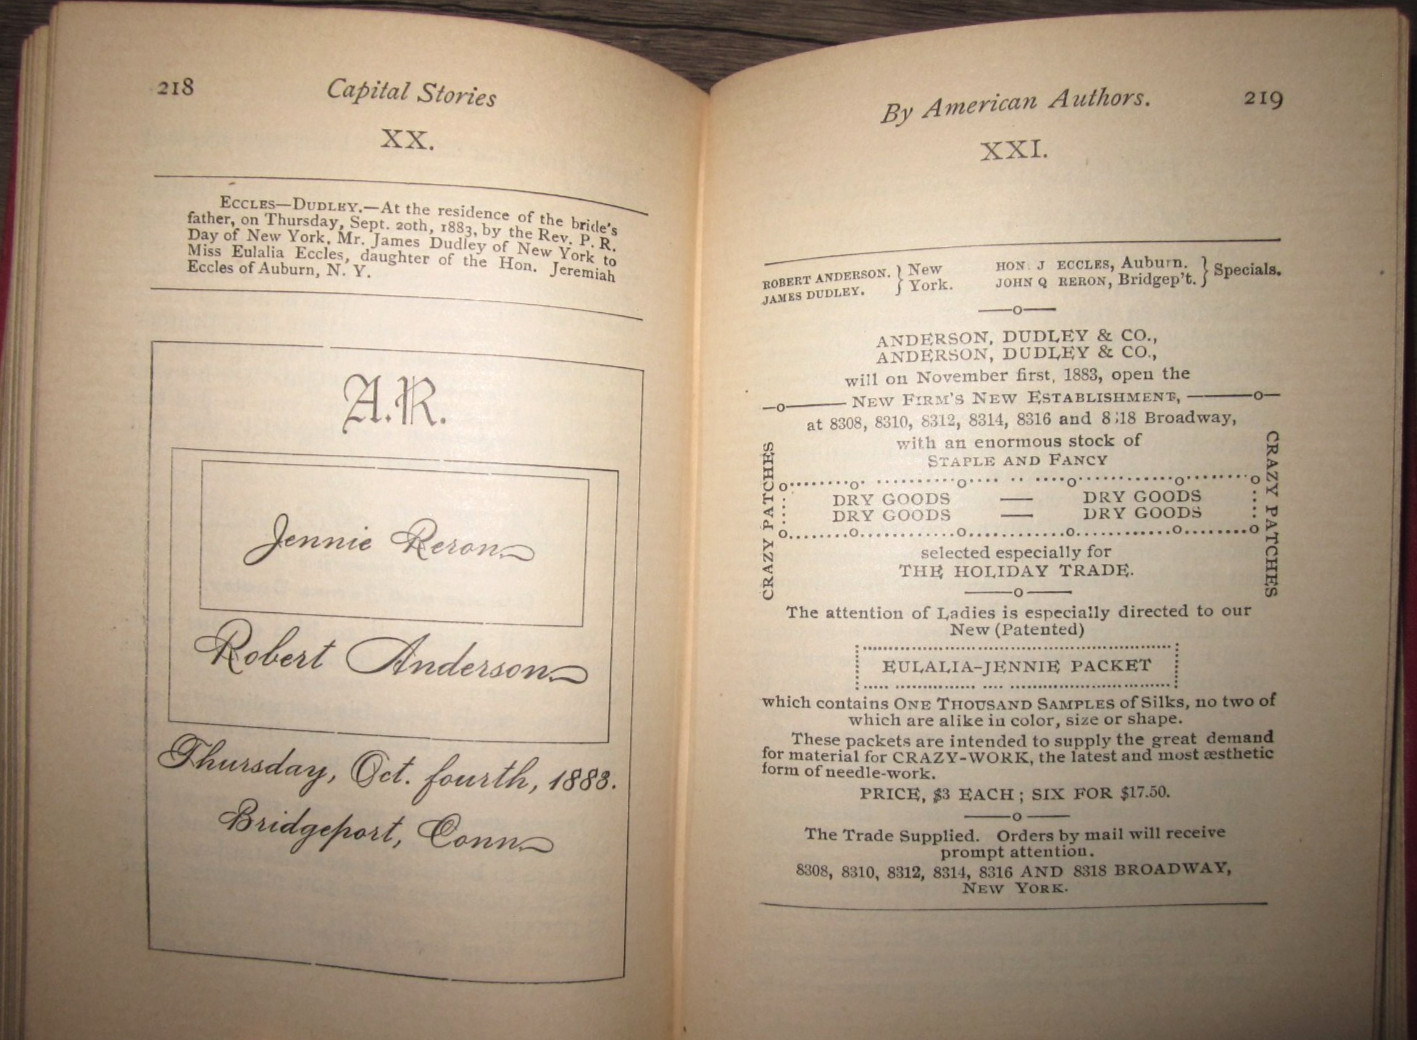 218
Capital Stories
XX.
ECCLES—DUDLEY.—At the residence of the bride's
father, on Thursday, Sept. 20th, 1883, by the Rev. P. R.
Day of New York, Mr. James Dudley of New York to
Miss Eulalia Eccles, daughter of the Hon. Jeremiah
Eccles of Auburn, N. Y.
A.R.
Jennie Reron
Robert Anderson
Thursday, Oct. fourth, 1883.
Bridgeport, Conn
By American Authors.
219
XXI.
ROBERT ANDERSON. } New
JAMES DUDLEY. } York.
HON. J ECCLES, Auburn. } Specials.
JOHN Q RERON, Bridgep't. }
——o——
ANDERSON, DUDLEY & CO.,
ANDERSON, DUDLEY & CO.,
will on November first, 1883, open the
—o—— NEW FIRM'S NEW ESTABLISHMENT, ——o—
at 8308, 8310, 8312, 8314, 8316 and 8318 Broadway,
with an enormous stock of
STAPLE AND FANCY
CRAZY PATCHES
DRY GOODS — DRY GOODS
DRY GOODS — DRY GOODS
CRAZY PATCHES
selected especially for
THE HOLIDAY TRADE.
——o——
The attention of Ladies is especially directed to our
New (Patented)
EULALIA-JENNIE PACKET
which contains ONE THOUSAND SAMPLES of Silks, no two of
which are alike in color, size or shape.
These packets are intended to supply the great demand
for material for CRAZY-WORK, the latest and most æsthetic
form of needle-work.
PRICE, $3 EACH ; SIX FOR $17.50.
——o——
The Trade Supplied. Orders by mail will receive
prompt attention.
8308, 8310, 8312, 8314, 8316 AND 8318 BROADWAY,
NEW YORK.